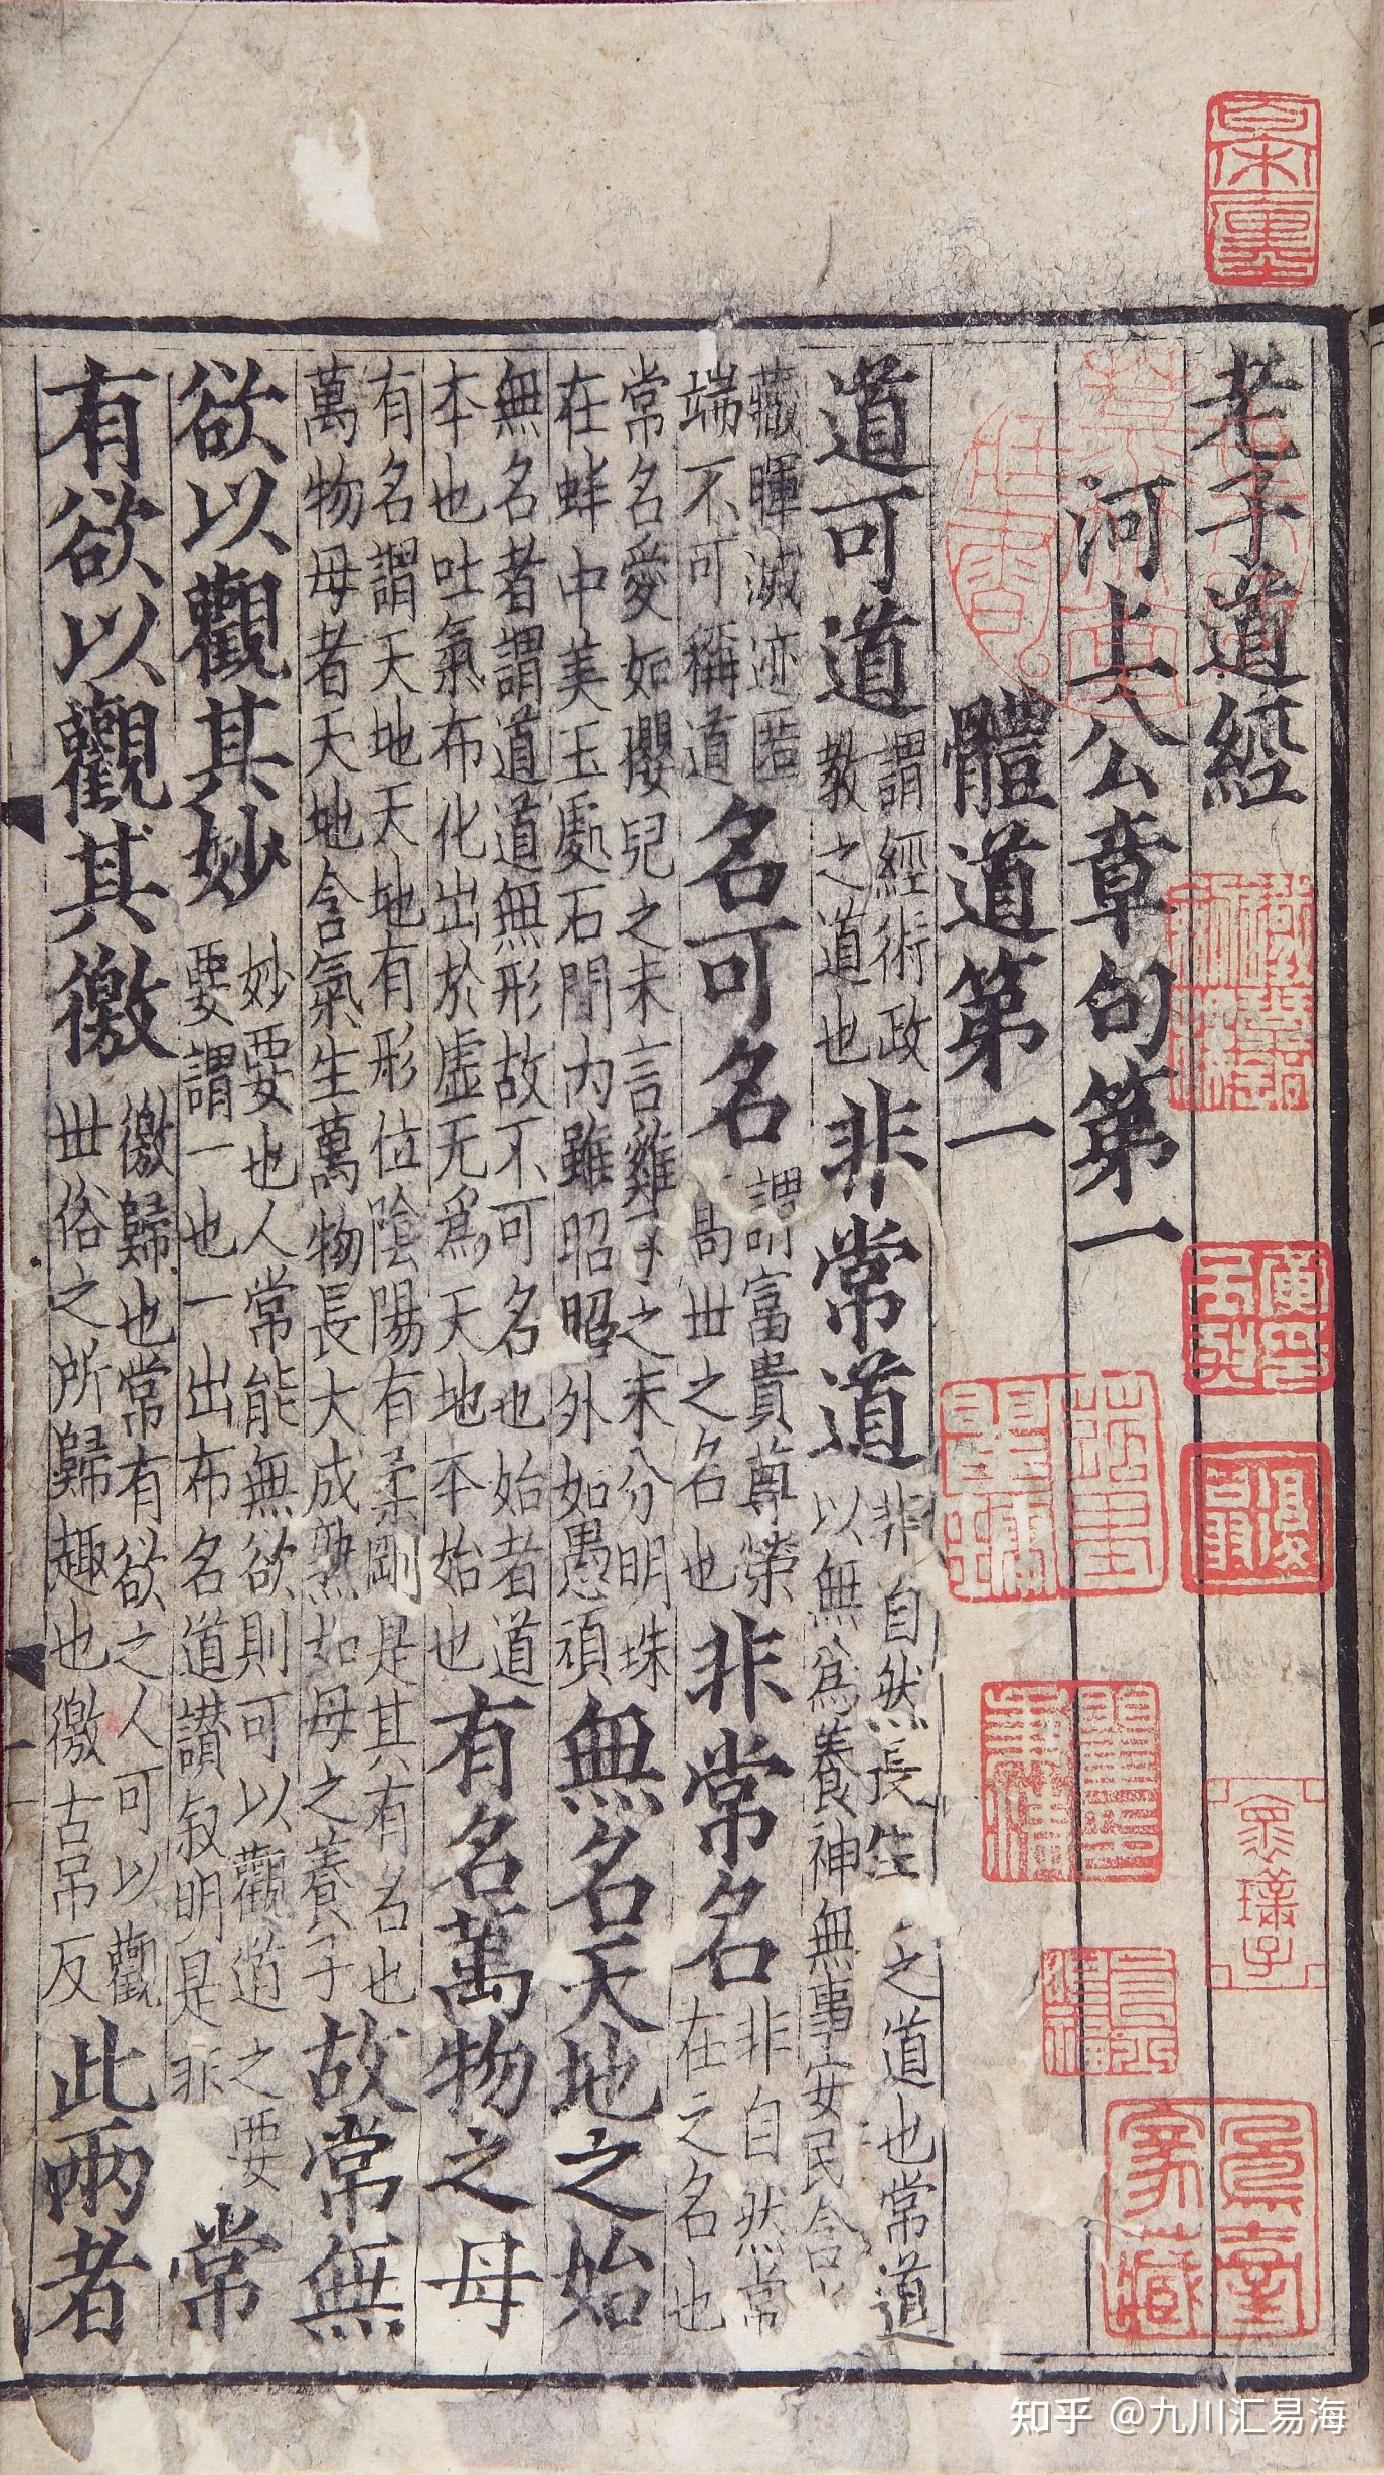 老子道經
河上公章句第一
體道第一
道可道謂經術政教之道也非常道非自然長生之道也常道以無爲養神無事安民含
藏暉滅迹匿端不可稱道名可名謂富貴尊榮高丗之名也非常名非自然常在之名也
常名愛如孾兒之未言雞子之未分明珠在蚌中美玉處石間内雖昭昭外如愚頑無名天地之始
無名者謂道道無形故不可名也始者道本也吐氣布化出於虛无爲天地本始也有名萬物之母
有名謂天地天地有形位陰陽有柔剛是其有名也萬物母者天地含氣生萬物長大成熟如母之養子故常無
欲以觀其妙妙要也人常能無欲則可以觀道之要要謂一也一出布名道讃叙明是非常
有欲以觀其徼徼歸也常有欲之人可以觀丗俗之所歸趣也徼古吊反此兩者
知乎 @九川汇易海